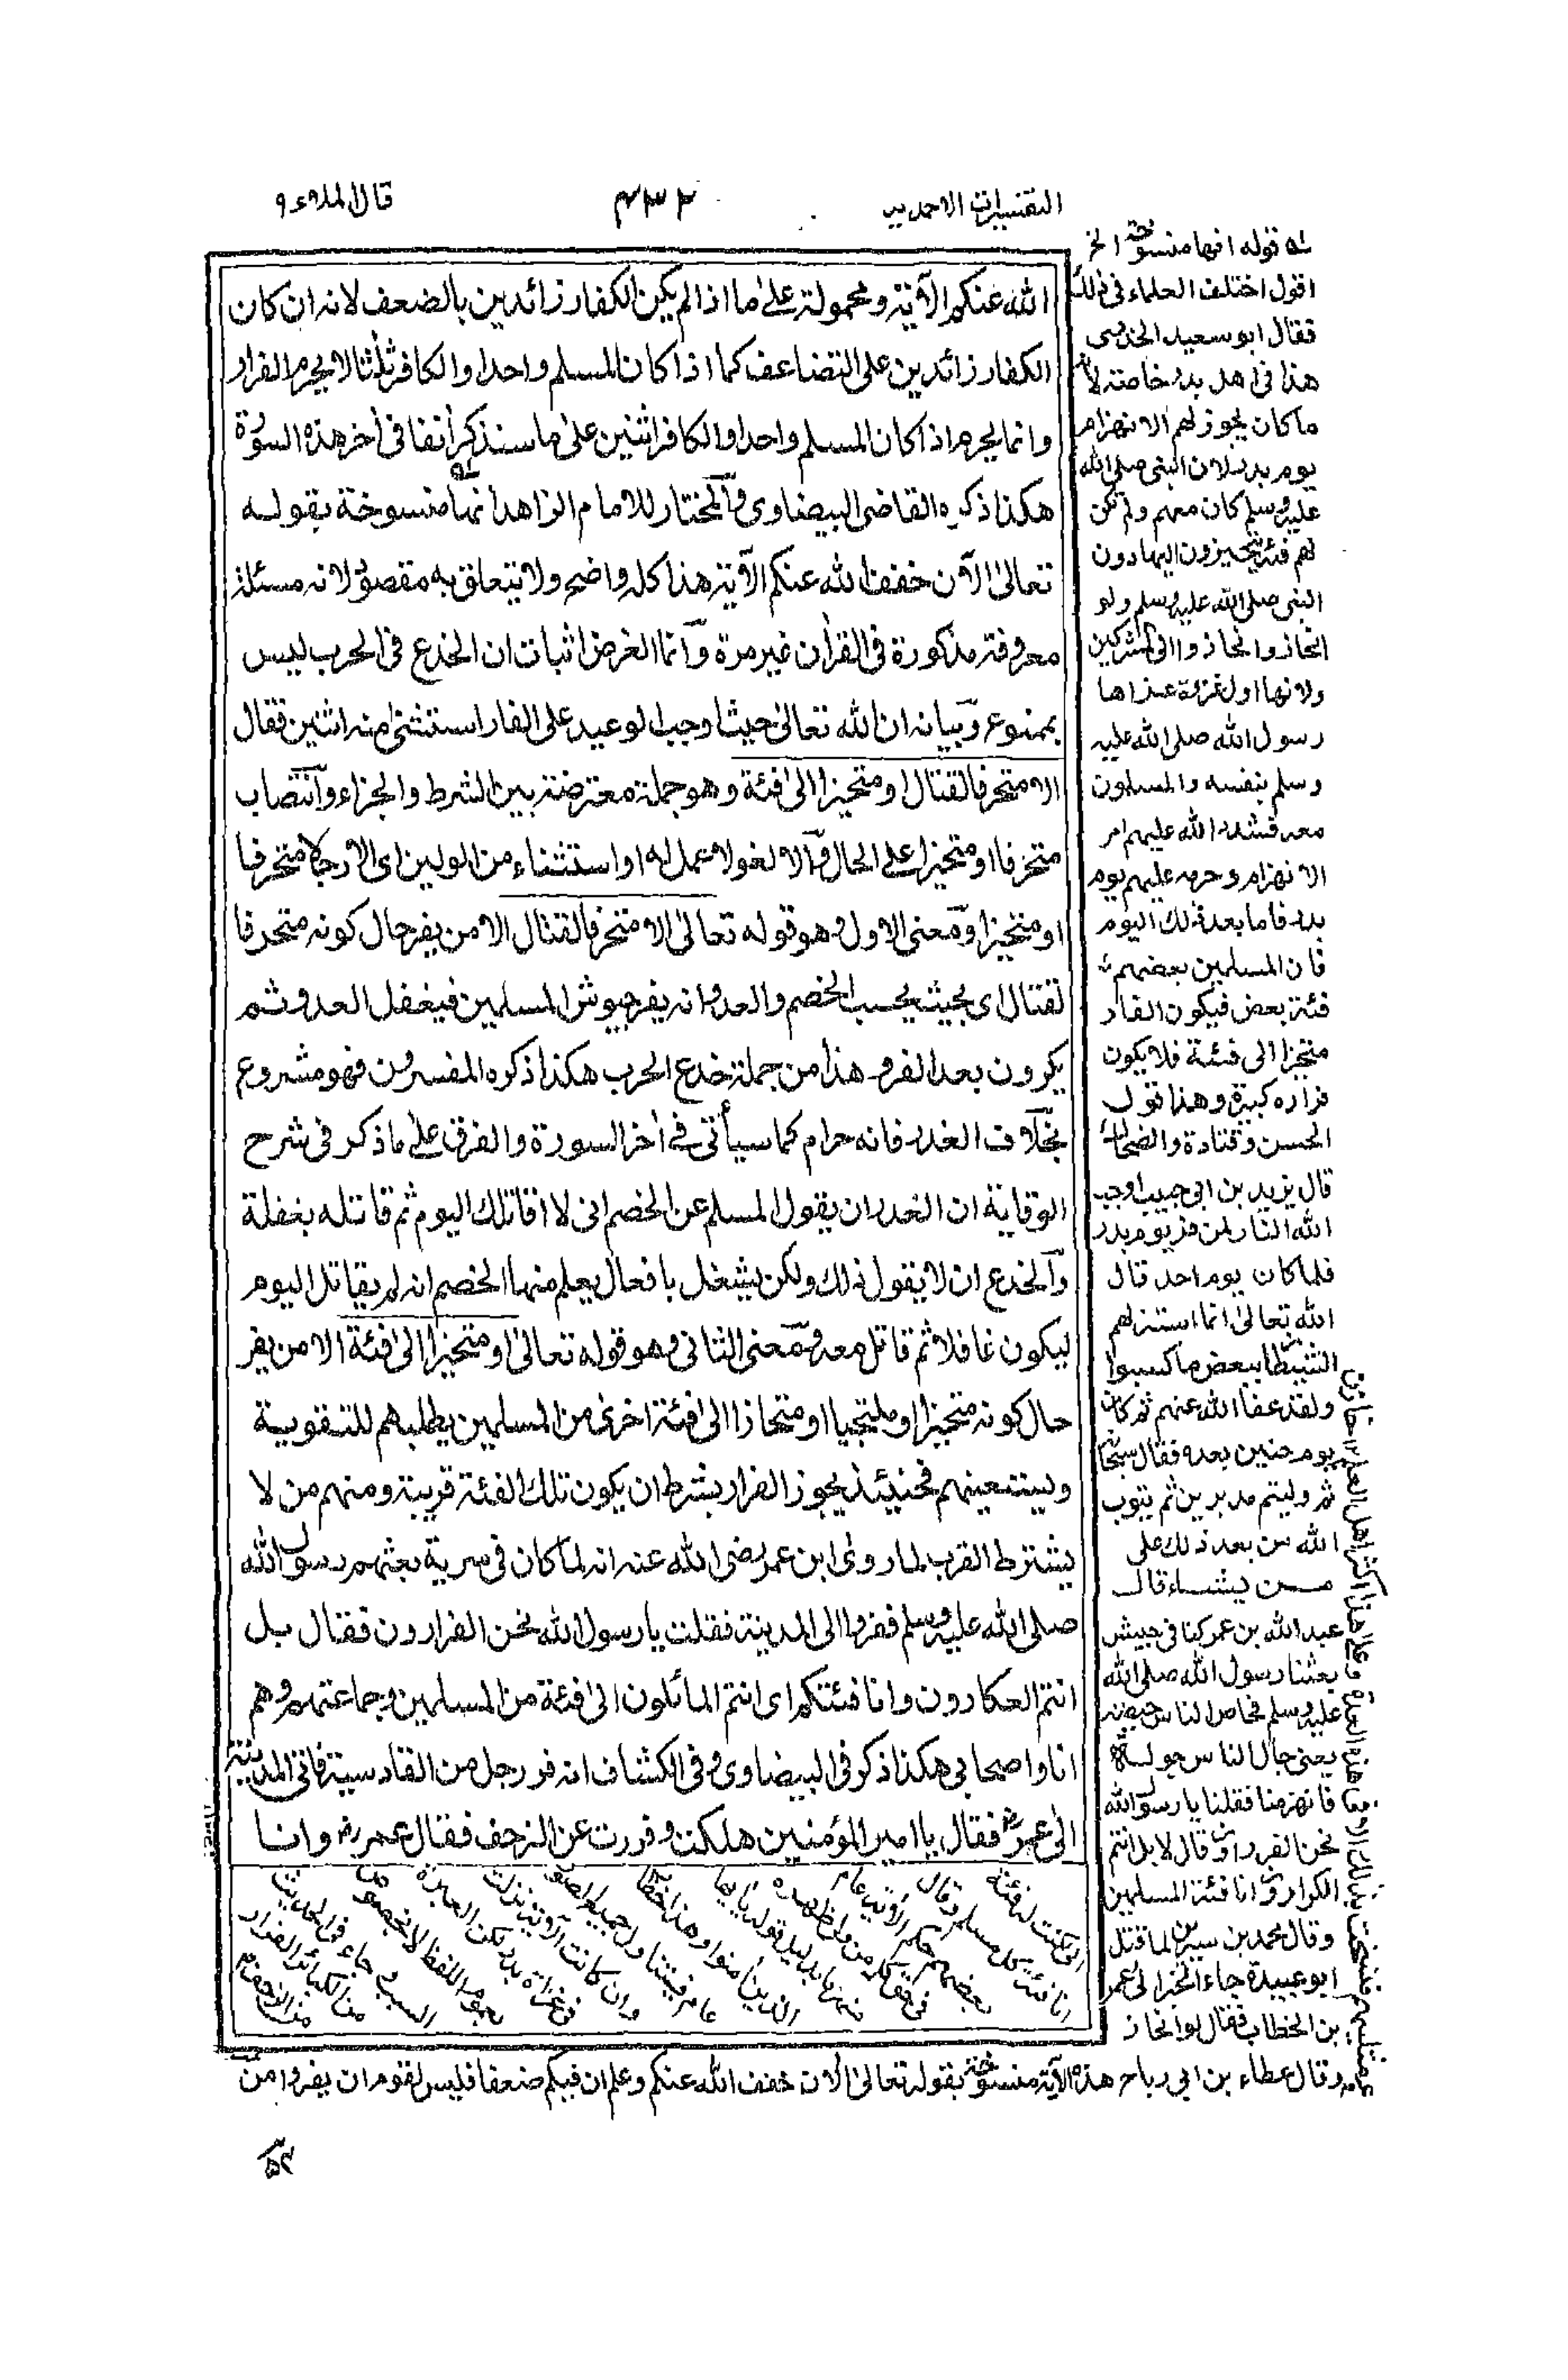 التفسيرات الاحمديه
٤٣٢
قال الملاء ٩
الله عنكم الآية ومحمولة على ما اذا لم يكن الكفار زائدين بالضعف لانه ان كان
الكفار زائدين على التضاعف كما اذا كان المسلم واحدا والكافر ثلثا لا يحرم الفرار
وانما يحرم اذا كان المسلم واحدا والكافر اثنين على ما سنذكر أنفا في أخر هذه السورة
هكذا ذكره القاضى البيضاوى والمختار للامام الزاهد انها منسوخة بقوله
تعالى الآن خفف الله عنكم الآية هذا كله واضح ولا يتعلق به مقصود لانه مسئلة
معروفة مذكورة فى القرأن غير مرة وانما الغرض اثبات ان الخدع فى الحرب ليس
بممنوع وبيانه ان الله تعالى حيث اوجب الوعيد على الفار استثنى منه اثنين فقال
الا متحرفا لقتال او متحيزا الى فئة وهو جملة معترضة بين الشرط والجزاء وانتصاب
متحرفا او متحيزا على الحال والا لغو لا عمل له او استثناء من المولين اى الا رجلا متحرفا
او متحيزا ومعنى الاول وهو قوله تعالى الا متحرفا لقتال الا من يفر حال كونه متحرفا
لقتال اى بحيث يحسب الخصم والعدو انه يفر جيوش المسلمين فيغفل العدو ثم
يكرون بعد الفر وهذا من جملة خدع الحرب هكذا ذكره المفسرون فهو مشروع
بخلاف الغدر فانه حرام كما سيأتى فى أخر السورة والفرق على ما ذكر فى شرح
الوقاية ان الغدر ان يقول المسلم عن الخصم انى لا اقاتلك اليوم ثم قاتله بغفلة
والخدع ان لا يقول ذلك ولكن يشغل بافعال يعلم منها الخصم انه لم يقاتل اليوم
ليكون غافلا ثم قاتل معه ومعنى الثانى وهو قوله تعالى او متحيزا الى فئة الا من يفر
حال كونه متحيزا او ملتجيا او متحازا الى فئة اخرى من المسلمين يطلبهم للتقوية
ويستعينهم فحينئذ يجوز الفرار بشرط ان يكون تلك الفئة قريبة ومنهم من لا
يشترط القرب لما روى ابن عمر رضى الله عنه انه لما كان فى سرية بعثهم رسول الله
صلى الله عليه وسلم ففروا الى المدينة فقلت يا رسول الله نحن الفرارون فقال بل
انتم العكارون وانا فئتكم اى انتم المائلون الى فئة من المسلمين وجماعتهم وهم
انا واصحابى هكذا ذكر فى البيضاوى وفى الكشاف انه فر رجل من القادسية فاتى المدينة
الى عمر رض فقال يا امير المؤمنين هلكت وفررت عن الزحف فقال عمر رض وانا
قوله انها منسوخة الخ
اقول اختلف العلماء فى ذلك
فقال ابو سعيد الخدرى
هذا فى اهل بدر خاصة لانه
ما كان يجوز لهم الانهزام
يوم بدر لان النبى صلى الله
عليه وسلم كان معهم ولم تكن
لهم فئة يتحيزون اليها دون
النبى صلى الله عليه وسلم ولو
انحازوا لانحازوا الى المشركين
ولانها اول غزوة غزاها
رسول الله صلى الله عليه
وسلم بنفسه والمسلمون
معه فشدد الله عليهم امر
الانهزام وحرمه عليهم يوم
بدر فاما بعد ذلك اليوم
فان المسلمين بعضهم
فئة بعض فيكون الفار
متحيزا الى فئة فلا يكون
فراره كبيرة وهذا قول
الحسن وقتادة والضحاك
قال يزيد بن ابى حبيب اوجب
الله النار لمن فر يوم بدر
فلما كان يوم احد قال
الله تعالى انما استزلهم
الشيطان ببعض ما كسبوا
ولقد عفا الله عنهم ثم كان
يوم حنين بعده فقال سبحانه
ثم وليتم مدبرين ثم يتوب
الله من بعد ذلك على
من يشاء قال
عبد الله بن عمر كنا فى جيش
بعثنا رسول الله صلى الله
عليه وسلم فحاص الناس حيصة
يعنى جال الناس جولة
فانهزمنا فقلنا يا رسول الله
نحن الفرارون قال لا بل انتم
الكرارون انا فئة المسلمين
وقال محمد بن سيرين لما قتل
ابو عبيدة جاء الخبر الى عمر
بن الخطاب فقال لو انحاز
الى كنت له فئة
انا فئة كل مسلم وقال
بعضهم حكم الآية عام
وان كانت الآية نزلت
فى غزاة بدر لكن العبرة
بعموم اللفظ لا بخصوص
السبب جاء فى الحديث
من الكبائر الفرار
من الزحف
وقال عطاء بن ابى رباح هذه الآية منسوخة بقوله تعالى الآن خفف الله عنكم وعلم ان فيكم ضعفا فليس لقوم ان يفروا من
٥٤